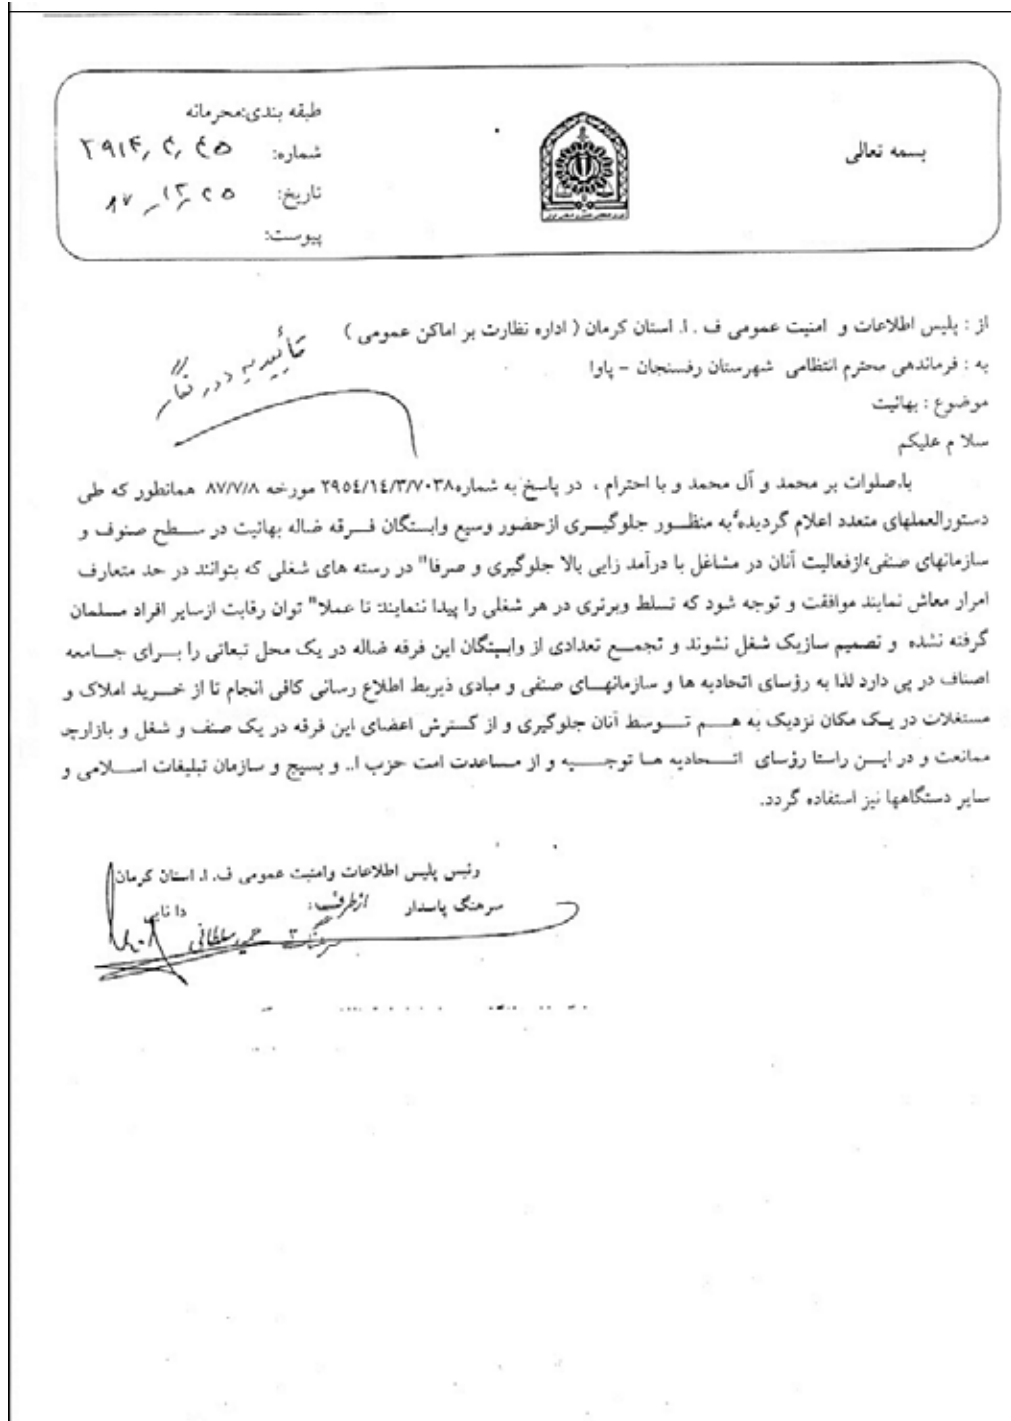 بسمه تعالی
طبقه بندی:محرمانه
شماره:
تاریخ: ۸۷ ٫ ۱۲ ٫ ۲۵
پیوست:
از : پلیس اطلاعات و امنیت عمومی ف . ا. استان کرمان ( اداره نظارت بر اماکن عمومی )
به : فرماندهی محترم انتظامی شهرستان رفسنجان – پاوا
موضوع : بهائیت
سلا م علیکم
با،صلوات بر محمد و آل محمد و با احترام ، در پاسخ به شماره۲۹۵٤/۱٤/۳/۷۰۳۸ مورخه ۸۷/۷/۸ همانطور که طی
دستورالعملهای متعدد اعلام گردیده به منظـــور جلوگیـــری ازحضور وسیع وابستگان فـــرقه ضاله بهائیت در ســـطح صنوف و
سازمانهای صنفی،ازفعالیت آنان در مشاغل با درآمد زایی بالا جلوگیری و صرفا" در رسته های شغلی که بتوانند در حد متعارف
امرار معاش نمایند موافقت و توجه شود که تسلط وبرتری در هر شغلی را پیدا ننمایند تا عملا" توان رقابت ازسایر افراد مسلمان
گرفته نشده و تصمیم سازیک شغل نشوند و تجمـــع تعدادی از وابستگان این فرقه ضاله در یک محل تبعاتی را بـــرای جـــامعه
اصناف در پی دارد لذا به رؤسای اتحادیه ها و سازمانهـــای صنفی و مبادی ذیربط اطلاع رسانی کافی انجام تا از خـــرید املاک و
مستغلات در یـک مکان نزدیک به هـــم تـــوسط آنان جلوگیری و از گسترش اعضای این فرقه در یک صنف و شغل و بازارچه
ممانعت و در ایـــن راستا رؤسای اتـــحادیه هـا توجـــیه و از مساعدت امت حزب ا.. و بسیج و سازمان تبلیغات اســـلامی و
سایر دستگاهها نیز استفاده گردد.
رئیس پلیس اطلاعات وامنیت عمومی ف. ا. استان کرمان
سرهنگ پاسدار ازطرف: دا نایی